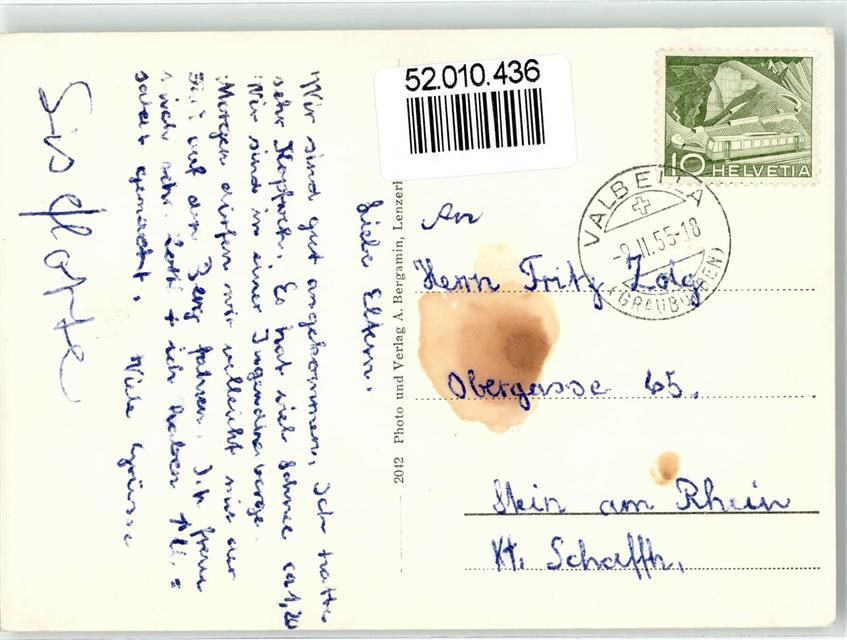 52.010.436
10 HELVETIA
VALBELLA
-9.II.55-18
(GRAUBÜNDEN)
An
Herrn Fritz Zolg
Obergasse 65.
Stein am Rhein
Kt. Schaffh.
2042 Photo und Verlag A. Bergamin, Lenzerh
Liebe Eltern.
Wir sind gut angekommen, Ich hatte
sehr Kopfweh. Es hat viel Schnee ca 1,20
Wir sind in einer Jugendherberge.
Morgen dürfen wir vielleicht mit der
auf den Berg fahren. Ich freue
mich sehr. + ich haben
salat gemacht. Viele Grüsse